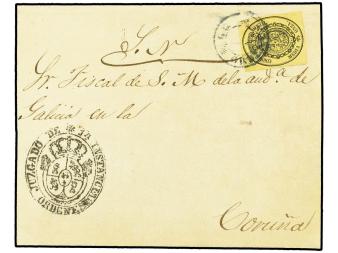 S. N.
Sr. Fiscal de S. M. de la aud.ª de
Galicia en la
Coruña
JUZGADO DE 1ª INSTANCIA
ORDENES